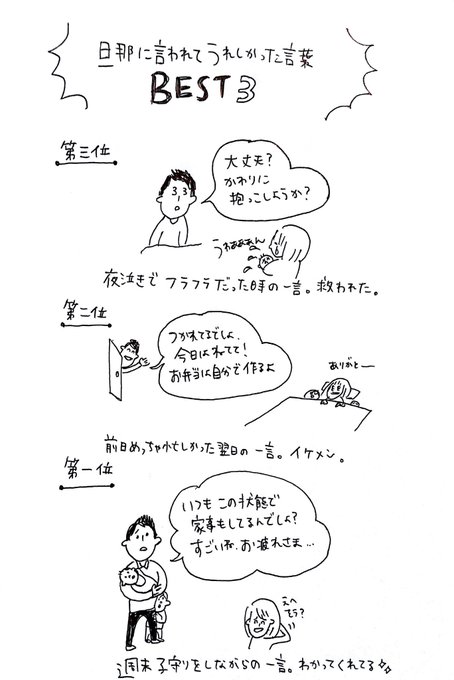 旦那に言われてうれしかった言葉
BEST3
第三位
大丈夫?
かわりに
抱っこしようか?
うわぁぁぁん
夜泣きでフラフラだった時の一言。救われた。
第二位
つかれてるでしょ、
今日はねてて!
お弁当は自分で作るよ
ありがとー
前日めっちゃ忙しかった翌日の一言。イケメン。
第一位
いつもこの状態で
家事もしてるんでしょ?
すごいね、お疲れさま…
えへ
そう?
週末子守りをしながらの一言。わかってくれてる